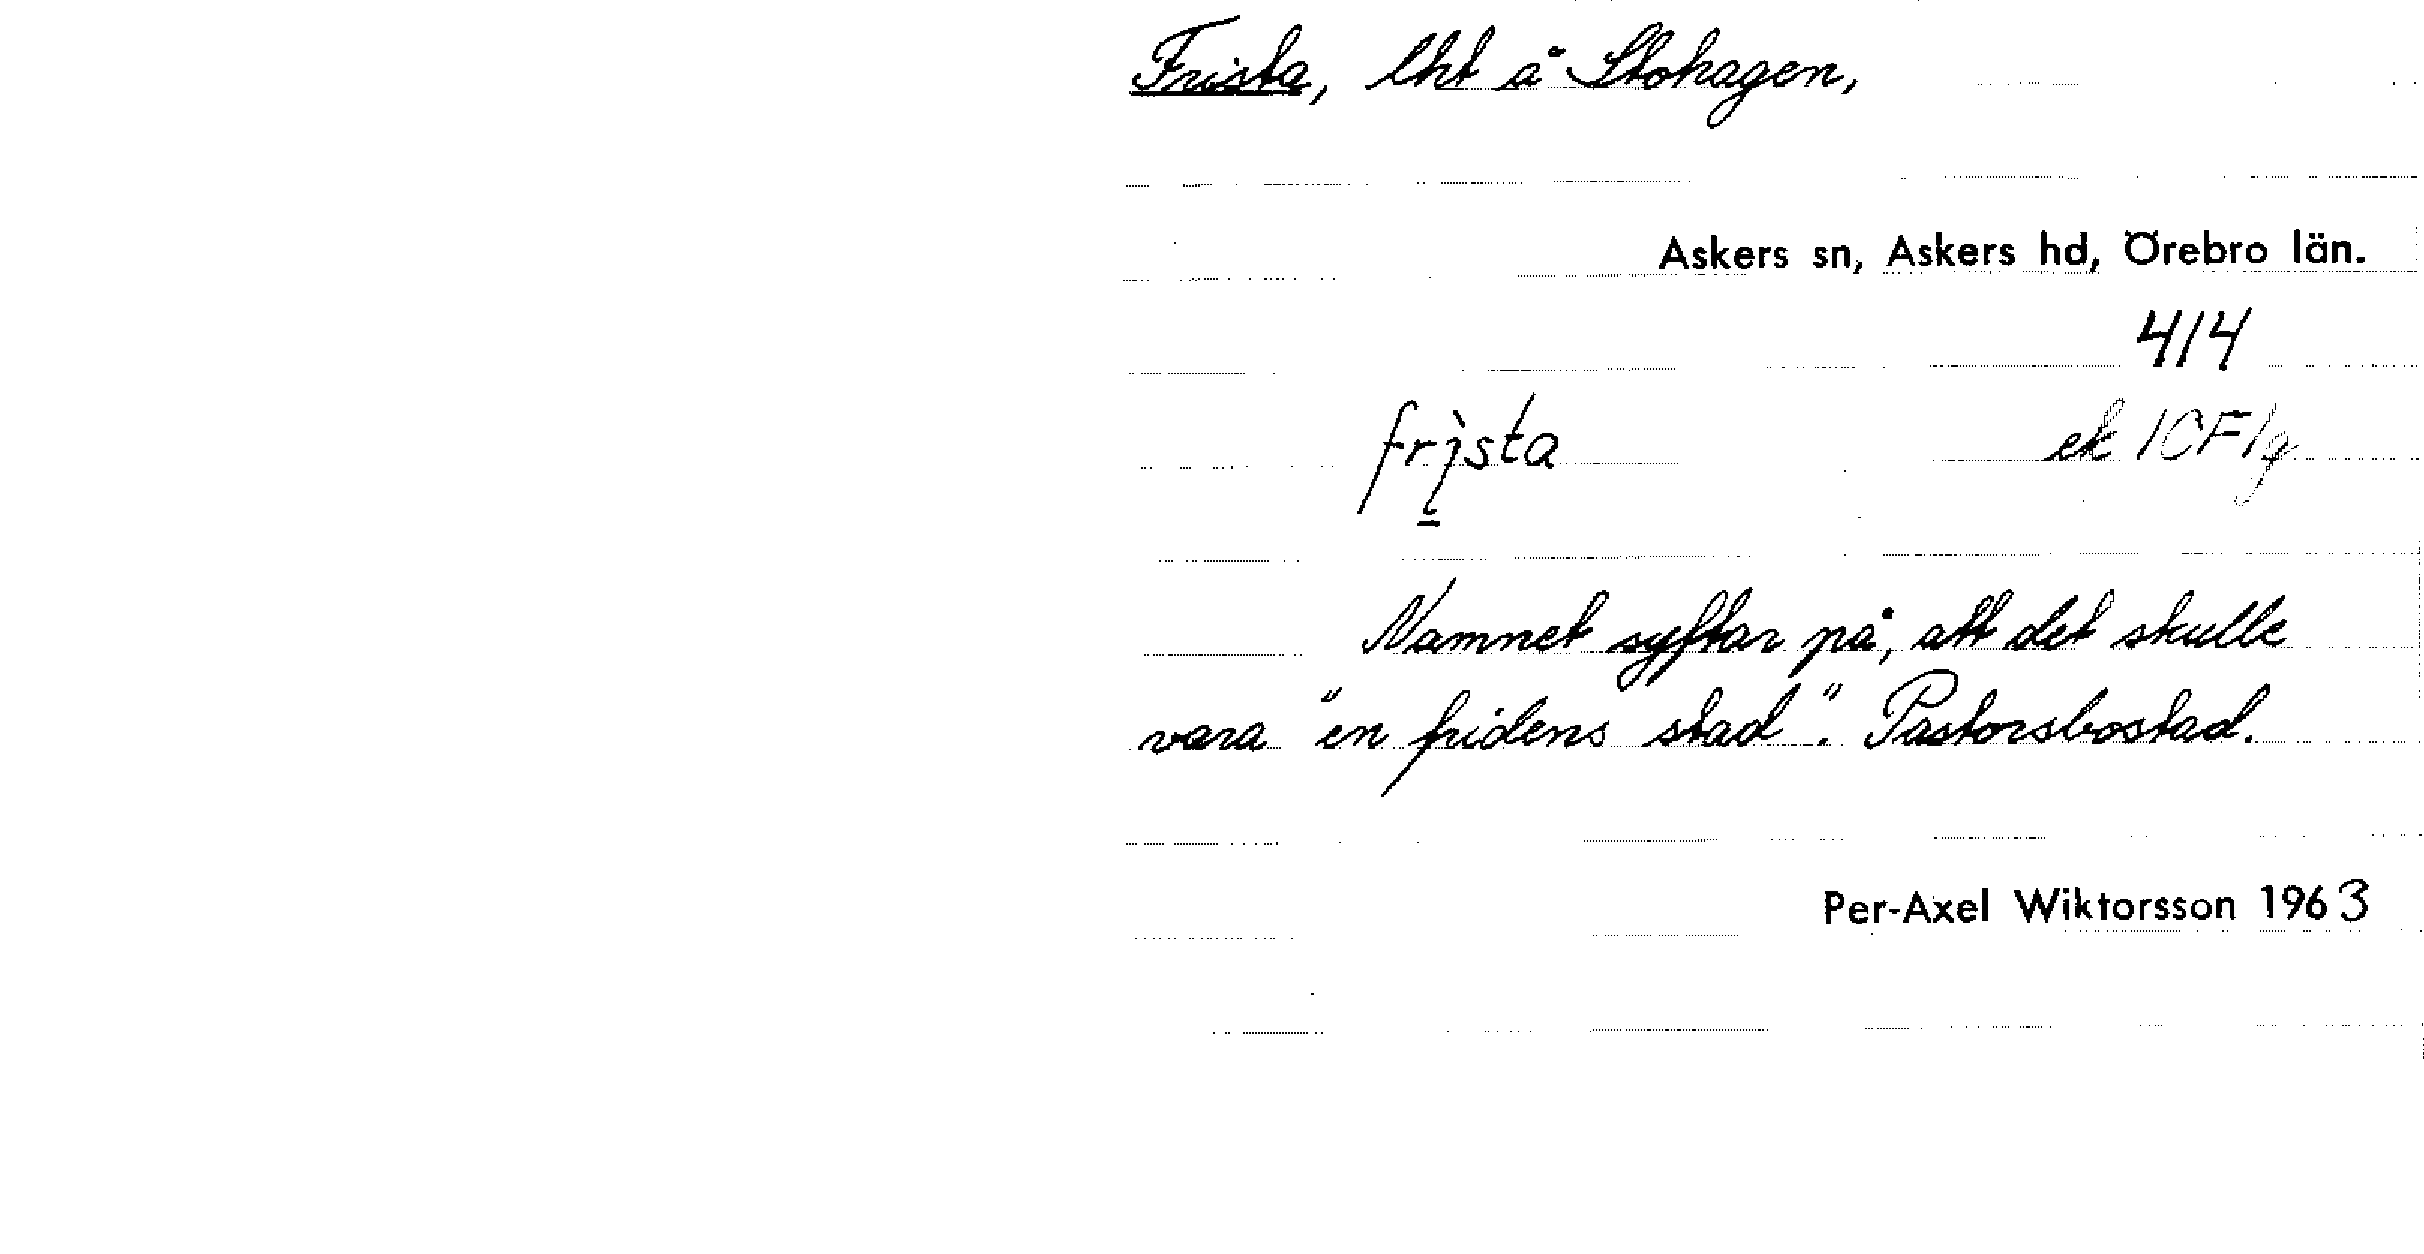 Frista, lht å Stohagen,
Askers sn, Askers hd, Örebro län.
414
frista
ek 10F1g
Namnet syftar på, att det skulle
vara "en fridens stad". Pastorsbostad.
Per-Axel Wiktorsson 1963